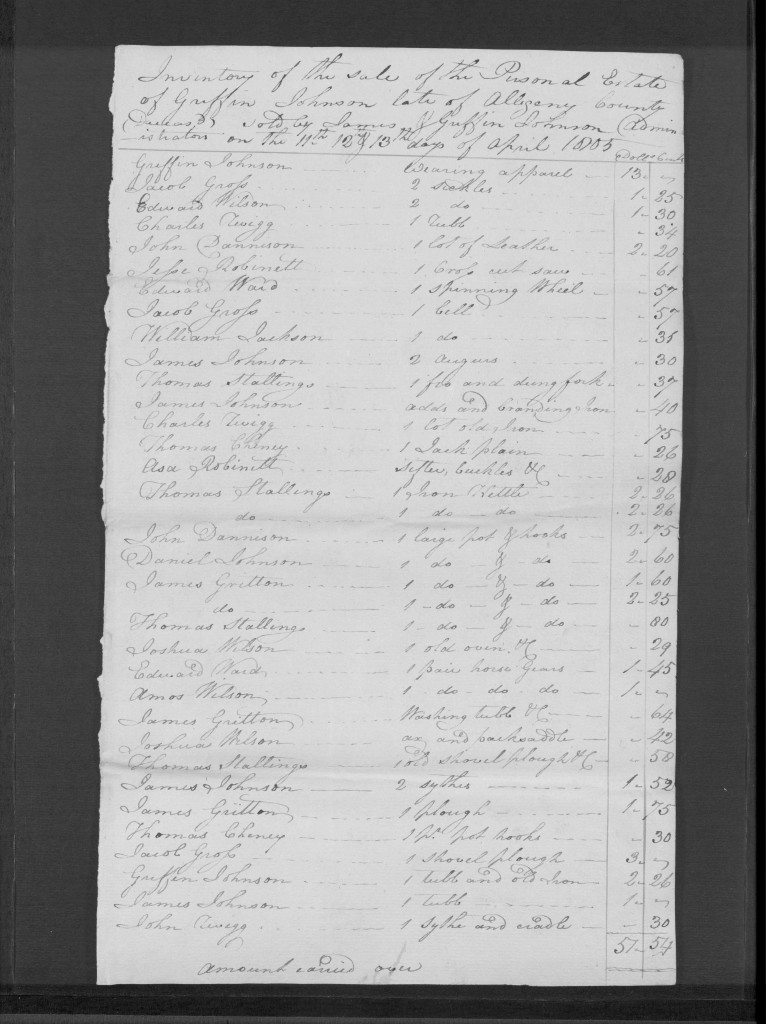 Inventory of the sale of the Pirsonal Estate
of Griffin Johnson late of Allegeny County
Deceasd sold by James & Griffin Johnson Admin-
istrators on the 11th 12th & 13th days of April 1805
Dolls Cents
Griffin Johnson wearing apparel 13 - "
Jacob Gross 2 1 - 25
Edward Wilson 2 do 1 - 30
Charles Twigg 1 tubb " 34
John Dannison 1 lot of Leather 2 - 20
Jesse Robinett 1 Cross cut saw " 61
Edward Ward 1 spinning Wheel " 57
Jacob Gross 1 bell " 57
William Jackson 1 do " 35
James Johnson 2 augurs " 30
Thomas Stallings 1 froo and dung fork " 37
James Johnson adds and branding Iron " 40
Charles Twigg 1 lot old Iron " 75
Thomas Cheney 1 Jack plain " 26
Asa Robinett sifter, buckles &C " 28
Thomas Stallings 1 Iron Kettle 2 - 26
do 1 do do 2 - 26
John Dannison 1 large pot & hooks 2 - 75
Daniel Johnson 1 do & do 2 - 60
James Gritton 1 do & do 1 - 60
do 1 do & do 2 - 25
Thomas Stallings 1 do & do " 80
Joshua Wilson 1 old oven &C " 29
Edward Ward 1 pair horse Gears 1 - 45
Amos Wilson 1 do do do 1 - "
James Gritton Washing tubb &C " 64
Joshua Wilson ax and packsaddle " 42
Thomas Stallings 1 old shovel plough &C " 58
James Johnson 2 sythes 1 - 52
James Gritton 1 plough 1 - 75
Thomas Cheney 1 pr pot hooks " 30
Jacob Gross 1 shovel plough 3 - "
Griffin Johnson 1 tubb and old Iron 2 - 26
James Johnson 1 tubb 1 - "
John Twigg 1 sythe and cradle " 30
51 - 54
amount carried over